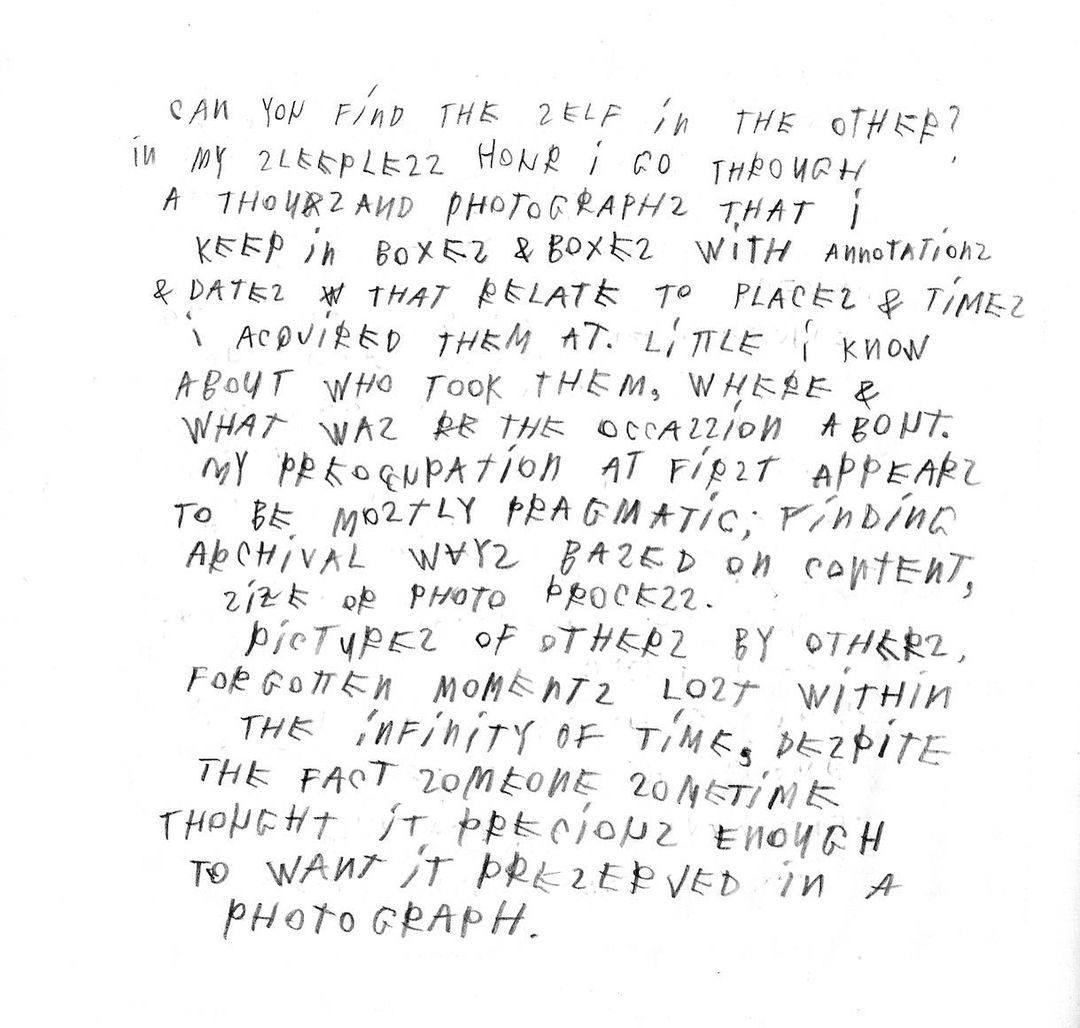 CAN YOU FIND THE SELF IN THE OTHER?
IN MY SLEEPLESS HOUR I GO THROUGH
A THOUSAND PHOTOGRAPHS THAT I
KEEP IN BOXES & BOXES WITH ANNOTATIONS
& DATES THAT RELATE TO PLACES & TIMES
I ACQUIRED THEM AT. LITTLE I KNOW
ABOUT WHO TOOK THEM, WHERE &
WHAT WAS THE OCCASSION ABOUT.
MY PREOCUPATION AT FIRST APPEARS
TO BE MOSTLY PRAGMATIC; FINDING
ARCHIVAL WAYS BASED ON CONTENT,
SIZE OR PHOTO PROCESS.
PICTURES OF OTHERS BY OTHERS,
FORGOTTEN MOMENTS LOST WITHIN
THE INFINITY OF TIME, DESPITE
THE FACT SOMEONE SOMETIME
THOUGHT IT PRECIOUS ENOUGH
TO WANT IT PRESERVED IN A
PHOTOGRAPH.